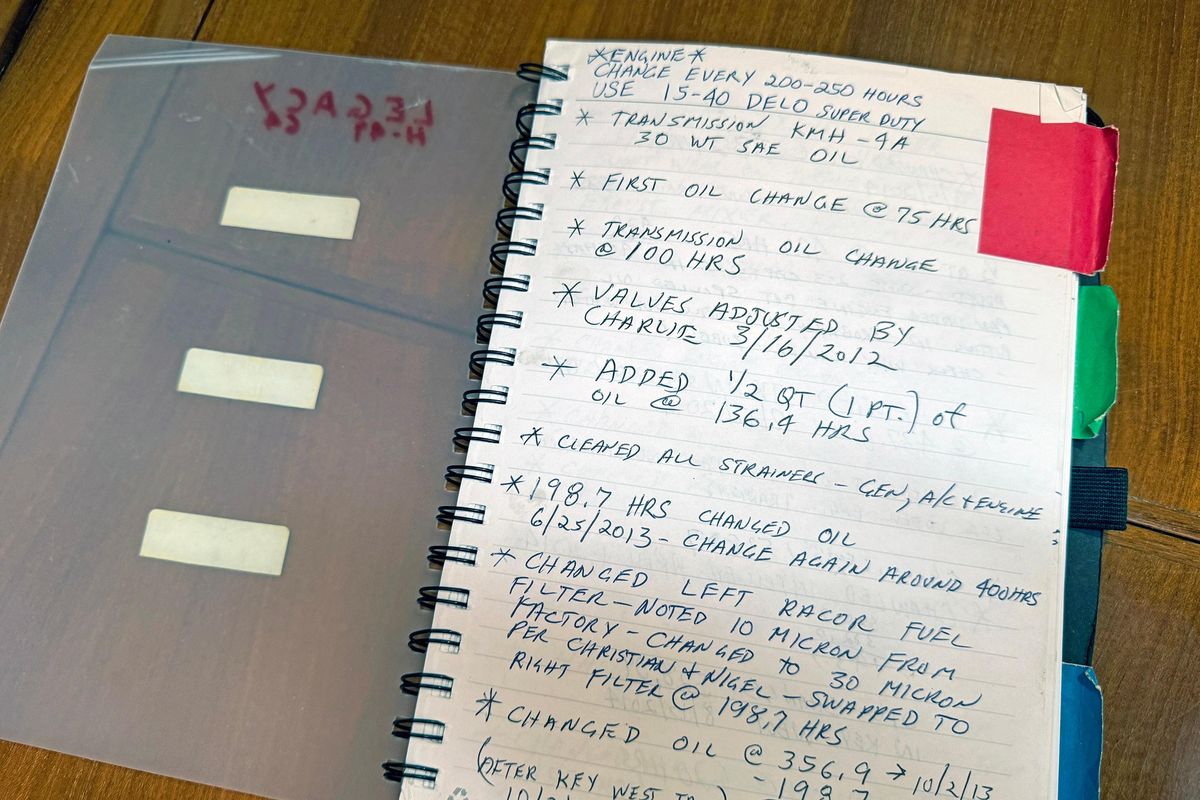 LEGACY
*ENGINE*
CHANGE EVERY 200-250 HOURS
USE 15-40 DELO SUPER DUTY
* TRANSMISSION KMH-4A
30 WT SAE OIL
* FIRST OIL CHANGE @ 75 HRS
* TRANSMISSION OIL CHANGE
@ 100 HRS
* VALVES ADJUSTED BY
CHARLIE 3/16/2012
* ADDED 1/2 QT (1 PT.) of
OIL @ 136.4 HRS
* CLEANED ALL STRAINERS - GEN, A/C + ENGINE
* 198.7 HRS CHANGED OIL
6/25/2013 - CHANGE AGAIN AROUND 400HRS
* CHANGED LEFT RACOR FUEL
FILTER - NOTED 10 MICRON FROM
FACTORY - CHANGED to 30 MICRON
PER CHRISTIAN & NIGEL - SWAPPED TO
RIGHT FILTER @ 198.7 HRS
* CHANGED OIL @ 356.9 → 10/2/13
(AFTER KEY WEST
- 198.7